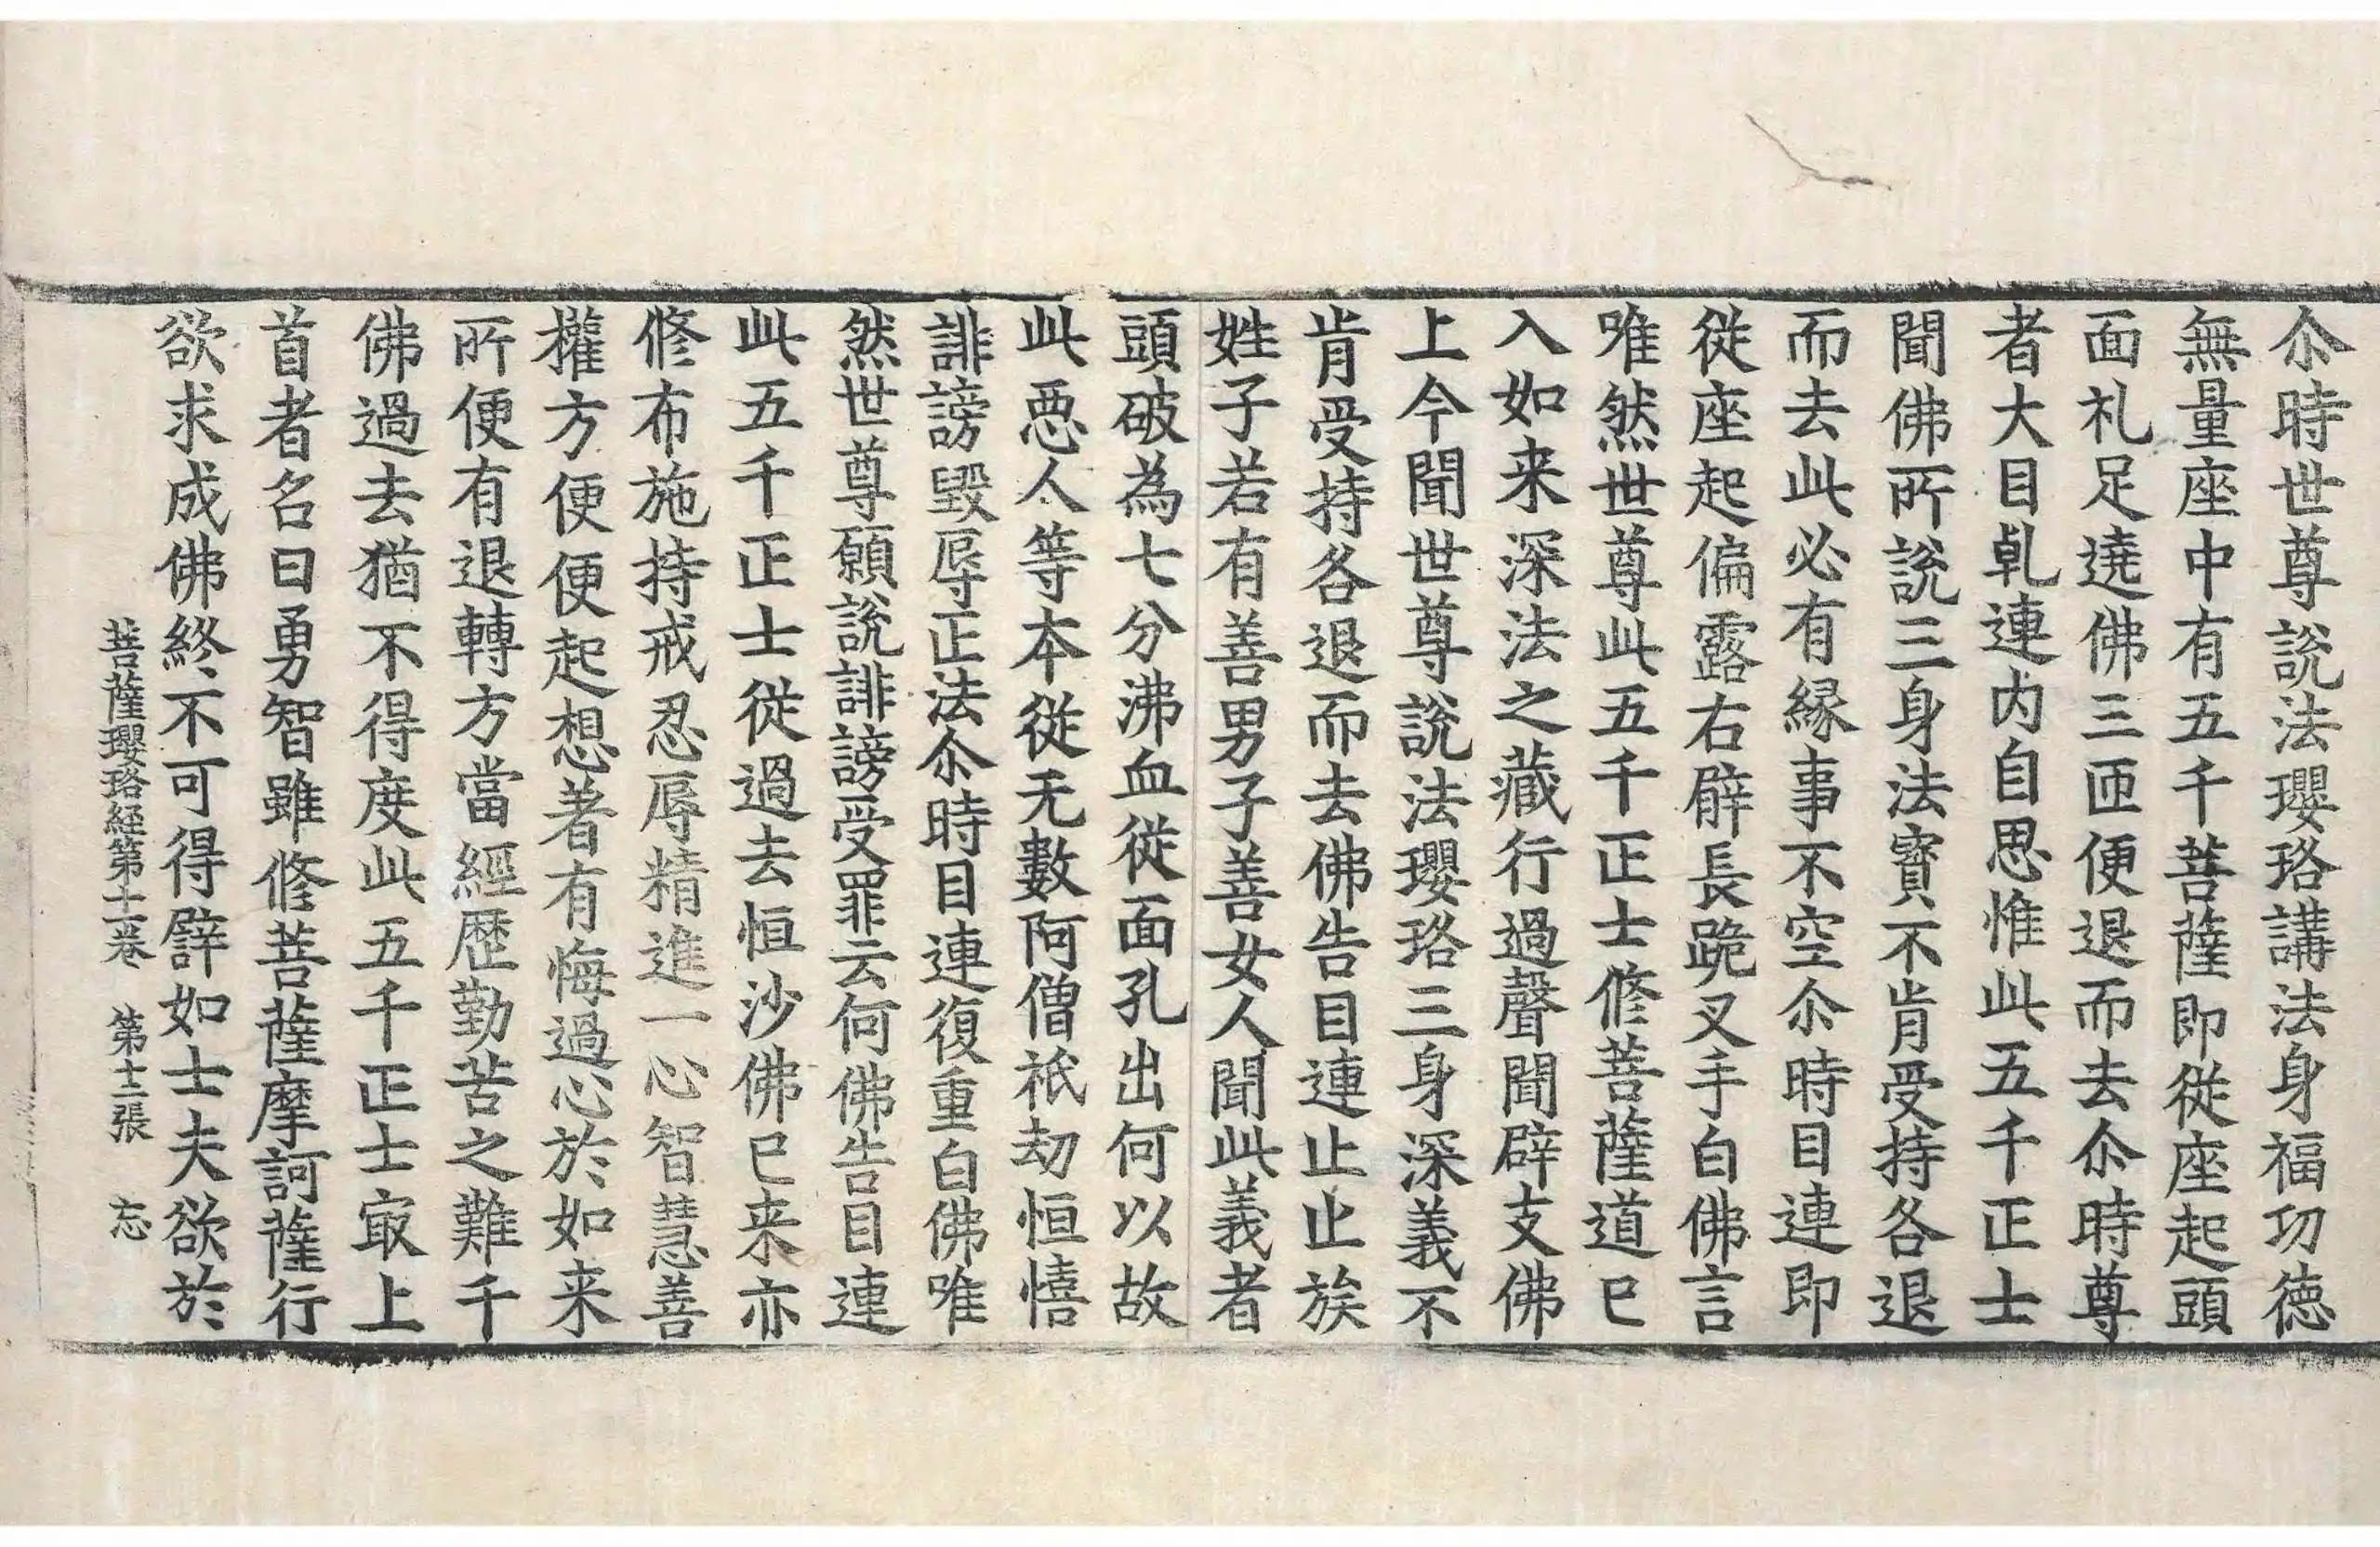 尒時世尊說法瓔珞講法身福功徳
無量座中有五千菩薩即從座起頭
面礼足遶佛三匝便退而去尒時尊
者大目乹連内自思惟此五千正士
聞佛所說三身法寳不肯受持各退
而去此必有縁事不空尒時目連即
從座起偏露右臂長跪叉手白佛言
唯然世尊此五千正士修菩薩道已
入如来深法之藏行過聲聞辟支佛
上今聞世尊說法瓔珞三身深義不
肯受持各退而去佛告目連止止族
姓子若有善男子善女人聞此義者
頭破為七分沸血從面孔出何以故
此惡人等本從无數阿僧祇劫恒憘
誹謗毀辱正法尒時目連復重白佛唯
然世尊願說誹謗受罪云何佛告目連
此五千正士從過去恒沙佛已来亦
修布施持戒忍辱精進一心智慧善
權方便便起想著有悔過心於如来
所便有退轉方當經歷勤苦之難千
佛過去猶不得度此五千正士㝡上
首者名曰勇智雖修菩薩摩訶薩行
欲求成佛終不可得譬如士夫欲於
菩薩瓔珞経第十二巻　第十二張　忘